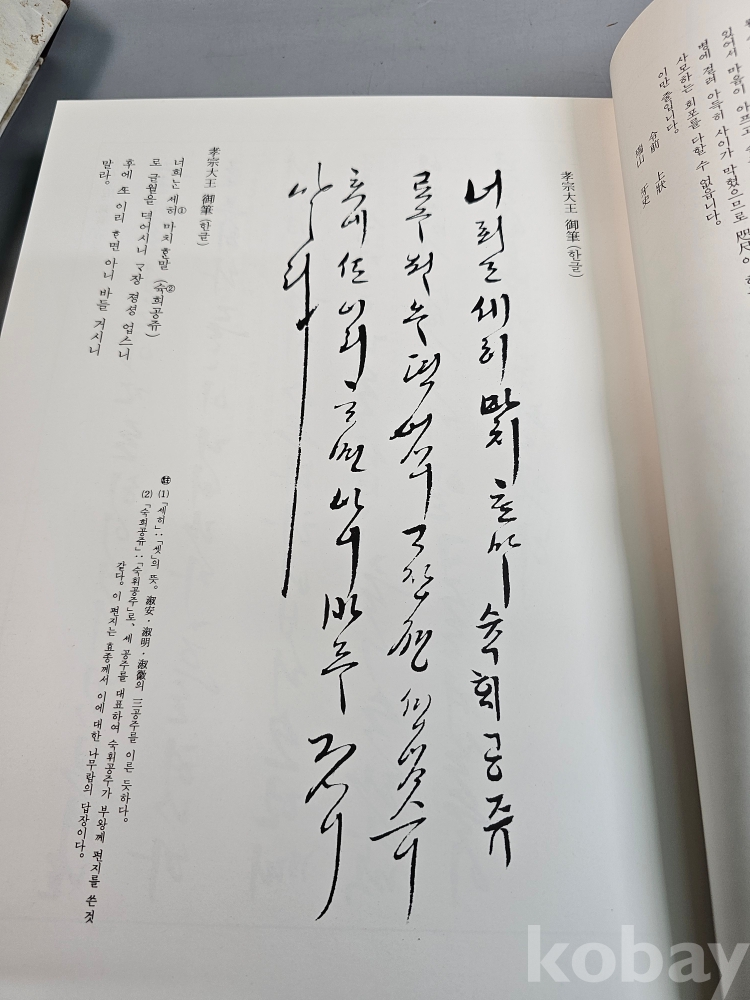 있어서 마음이 아프고
병에 걸려 아득히 사이가 막혔으므로 咫尺에
사모하는 회포를 다할 수 없읍니다.
이만 줄입니다.
令前 上狀
孝宗大王 御筆 (한글)
너희ᄂᆞᆫ 세히 마치 ᄒᆞᆫ말 숙희공쥬
로 글월을 뎍어시니 ᄀᆞ장 졍셩 업스니
후에 ᄯᅩ 이리 ᄒᆞ면 아니 바들 거시니
말라
孝宗大王 御筆 (한글)
너희ᄂᆞᆫ 세히① 마치 ᄒᆞᆫ말 (숙희공쥬)②
로 글월을 뎍어시니 ᄀᆞ장 졍셩 업스니
후에 ᄯᅩ 이리 ᄒᆞ면 아니 바들 거시니
말라.
註 (1) 「세히」:「셋」의 뜻. 淑安·淑明·淑徽의 三公主를 이른 듯하다.
(2) 「숙희공쥬」:「숙휘공주」로, 세 공주를 대표하여 숙휘공주가 부왕께 편지를 쓴 것
같다. 이 편지는 효종께서 이에 대한 나무람의 답장이다.
kobay